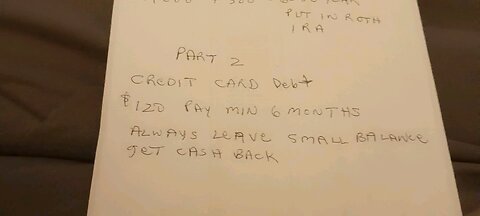 PUT IN ROTH
IRA
PART 2
CREDIT CARD Debt
$120 PAY MIN 6 MONTHS
ALWAYS LEAVE SMALL BALANCE
GET CASH BACK